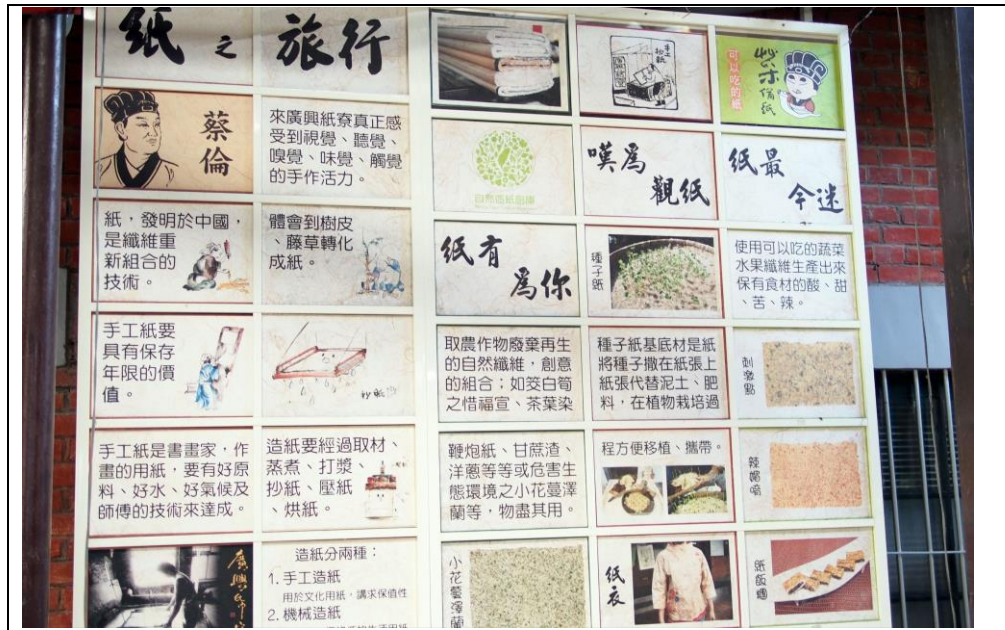 紙之旅行
蔡倫
來廣興紙寮真正感
受到視覺、聽覺、
嗅覺、味覺、觸覺
的手作活力。
紙，發明於中國，
是纖維重
新組合的
技術。
體會到樹皮
、藤草轉化
成紙。
手工紙要
具有保存
年限的價
值。
抄紙
手工紙是書畫家，作
畫的用紙，要有好原
料、好水、好氣候及
師傅的技術來達成。
造紙要經過取材、
蒸煮、打漿、
抄紙、壓紙
、烘紙。
廣興
造紙分兩種：
1.手工造紙
用於文化用紙，講求保值性
2.機械造紙
手工
抄紙
可以吃的紙
嘆為
觀紙
紙最
今迷
紙有
為你
種子紙
使用可以吃的蔬菜
水果纖維生產出來
保有食材的酸、甜
、苦、辣。
取農作物廢棄再生
的自然纖維，創意
的組合；如筊白筍
之惜福宣、茶葉染
種子紙基底材是紙
將種子撒在紙張上
紙張代替泥土、肥
料，在植物栽培過
刺激點
鞭炮紙、甘蔗渣、
洋蔥等等或危害生
態環境之小花蔓澤
蘭等，物盡其用。
程方便移植、攜帶。
辣媚嗆
小花蔓澤蘭
紙衣